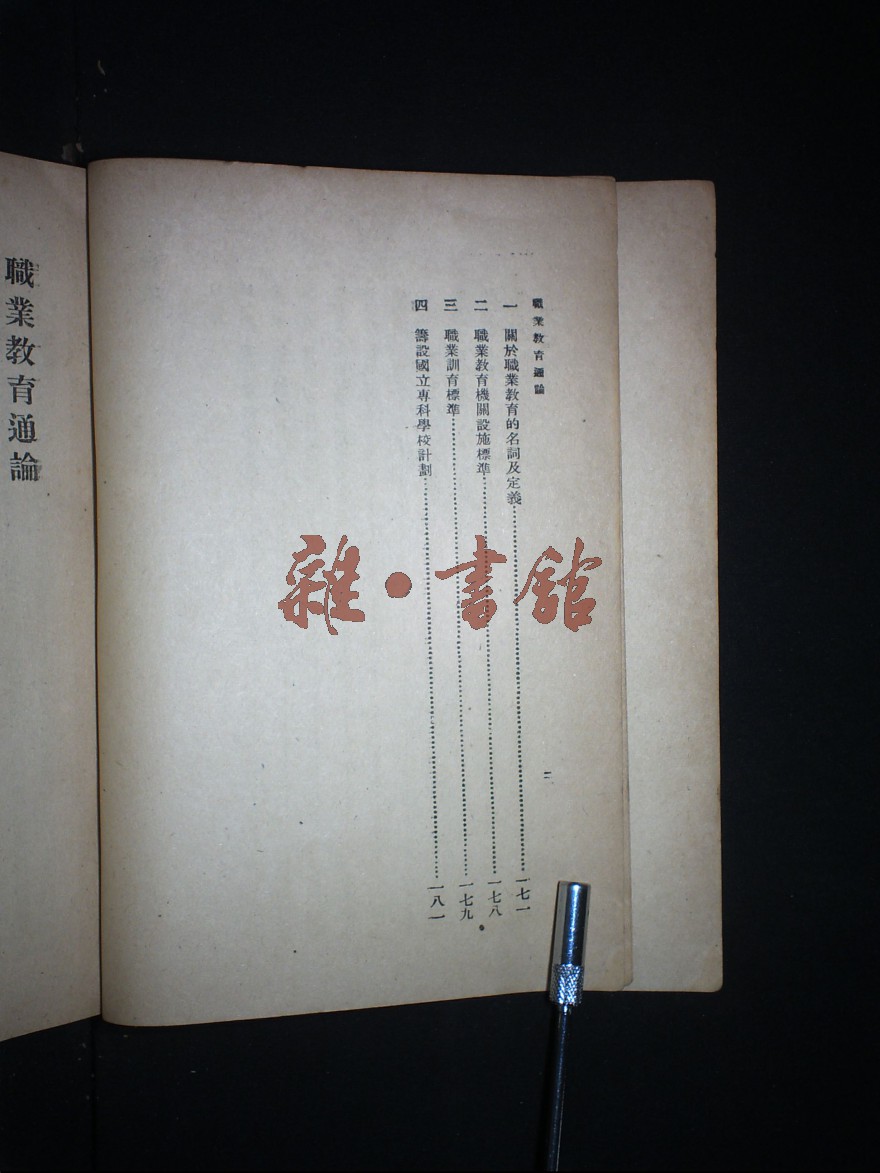 職業教育通論
一 關於職業教育的名詞及定義……一七一
二 職業教育機關設施標準……一七八
三 職業訓育標準……一七九
四 籌設國立專科學校計劃……一八一
二
職業教育通論
雜·書館